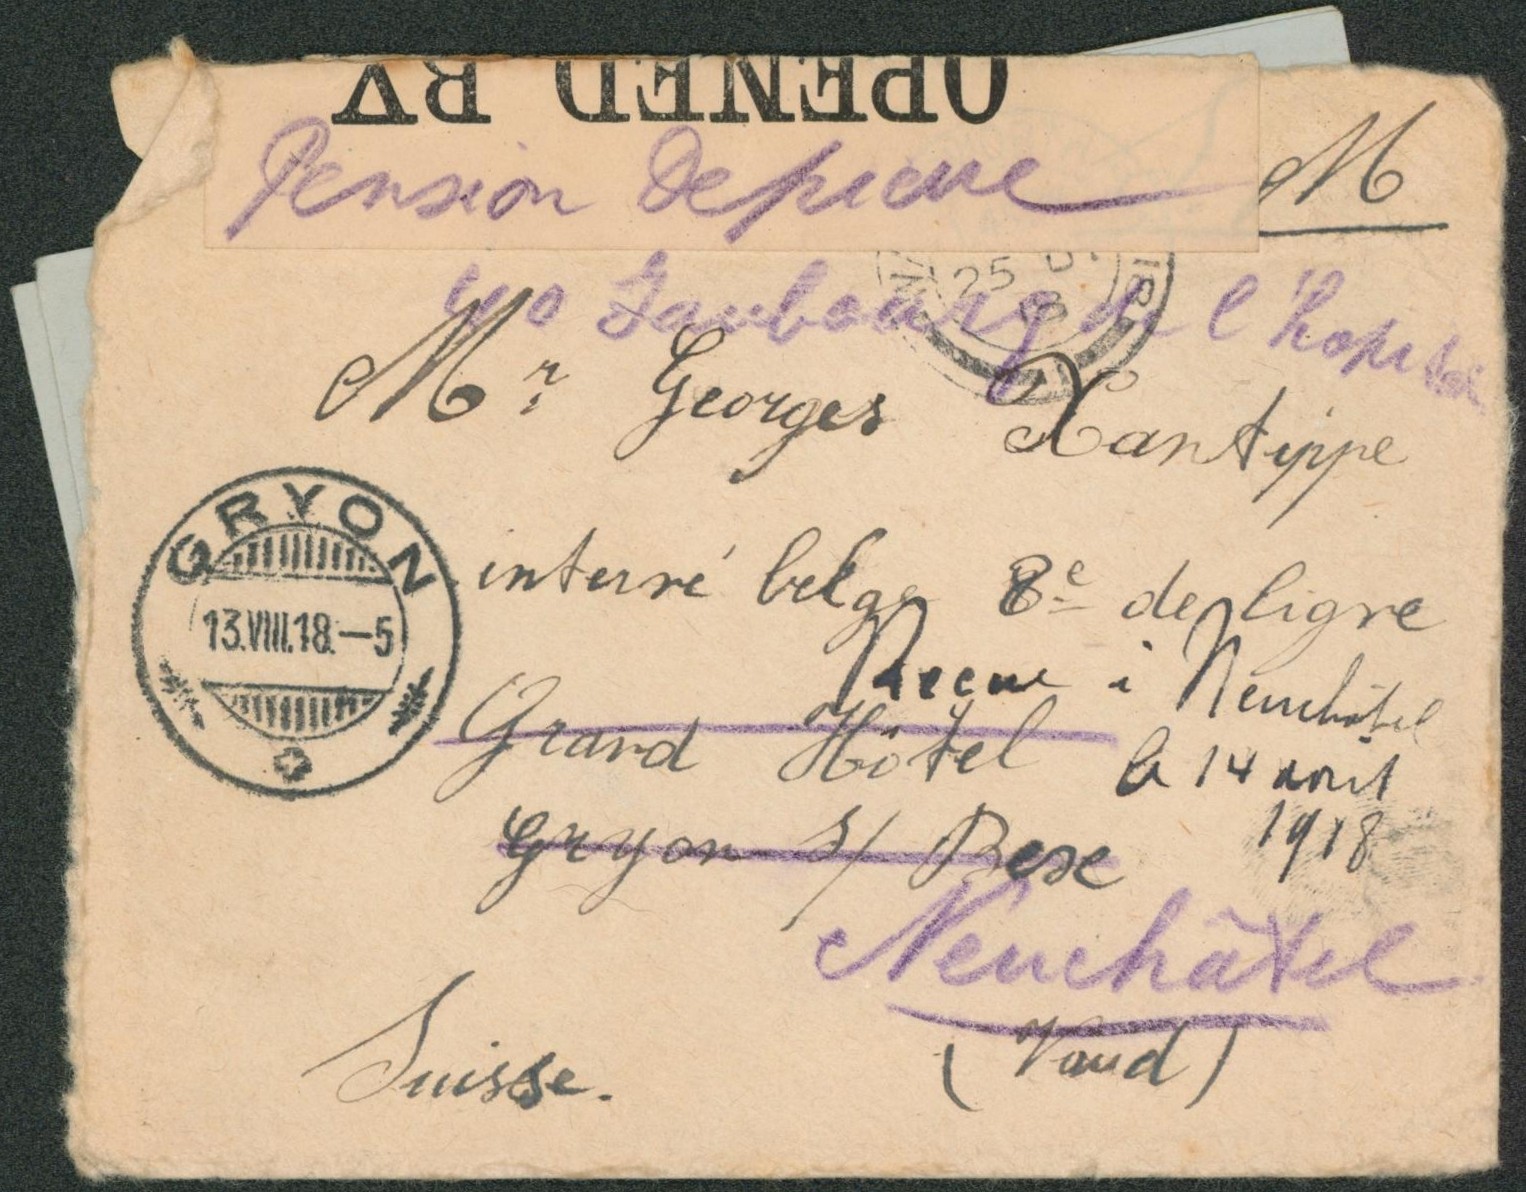 OPENED BY
Pension
M
Faubourg de l'hopital
25
Mr Georges Xantippe
GRYON
13.VIII.18.-5
interné belge 8e de ligne
Neuchâtel
Grand Hôtel
le 14 août
1918
Gryon s/ Bex
Neuchâtel
(Vaud)
Suisse.